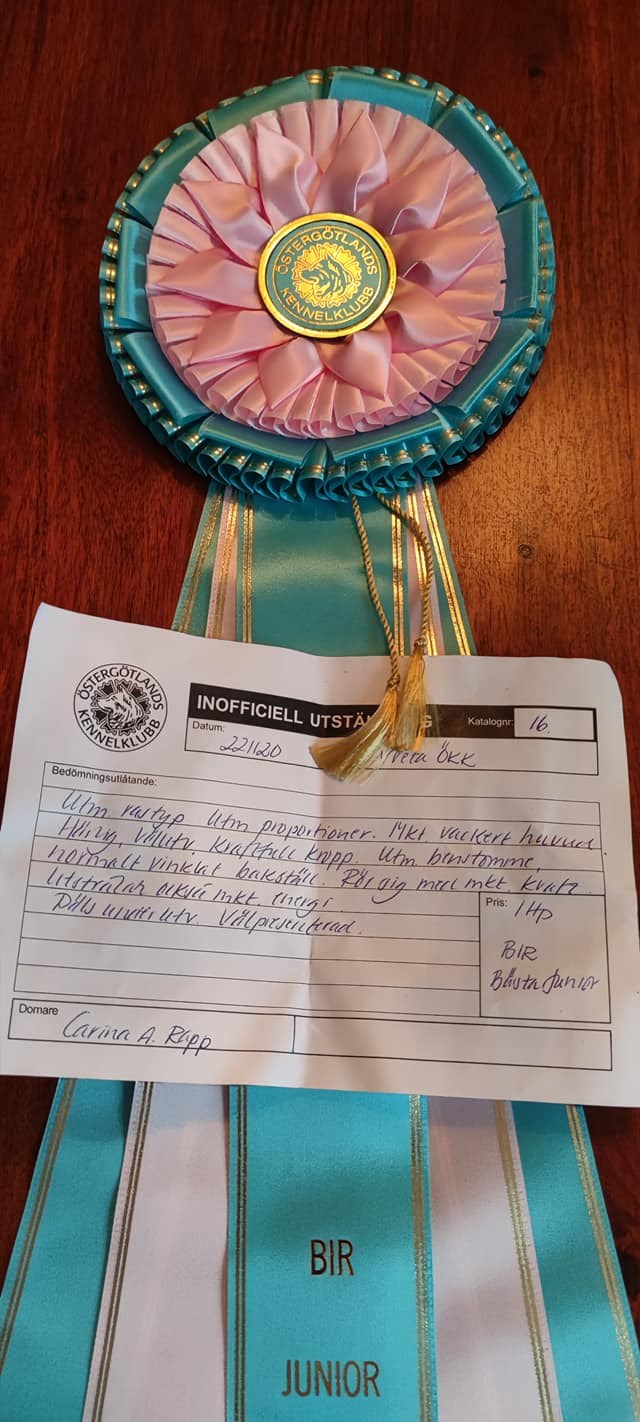 ÖSTERGÖTLANDS
KENNELKLUBB
ÖSTERGÖTLANDS
KENNELKLUBB
INOFFICIELL UTSTÄ G
Katalognr: 16.
Datum:
221120 ÖKK
Bedömningsutlåtande:
Utm rastyp Utm proportioner. Mkt. vackert huvud.
Härlig, välutv. kraftfull kropp. Utm benstomme,
normalt vinklat bakställ. Rör sig med mkt. kvalz
Utstrålar också mkt. energi
Päls under utv. Välpresenterad.
Pris: 1 Hp
BIR
Bästa Junior
Domare
Carina A. Rapp
BIR
JUNIOR